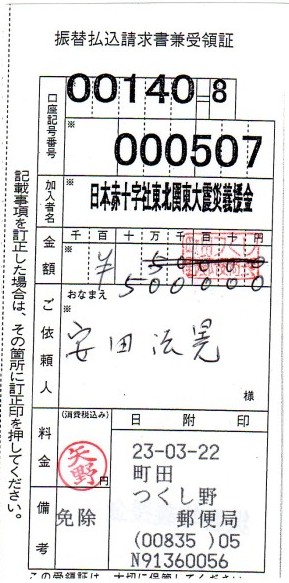 振替払込請求書兼受領証
口座記号番号
※
00140-8
※
000507
加入者名
※
日本赤十字社東北関東大震災義援金
金額
千百十万千百十円
¥ 50000
500000
ご依頼人
おなまえ
※
安田法晃
様
料金
(消費税込み)
矢野
円
備考
免除
日附印
23-03-22
町田
つくし野
郵便局
(00835 )05
N91360056
この受領証は、大切に保管してください。
記載事項を訂正した場合は、その箇所に訂正印を押してください。